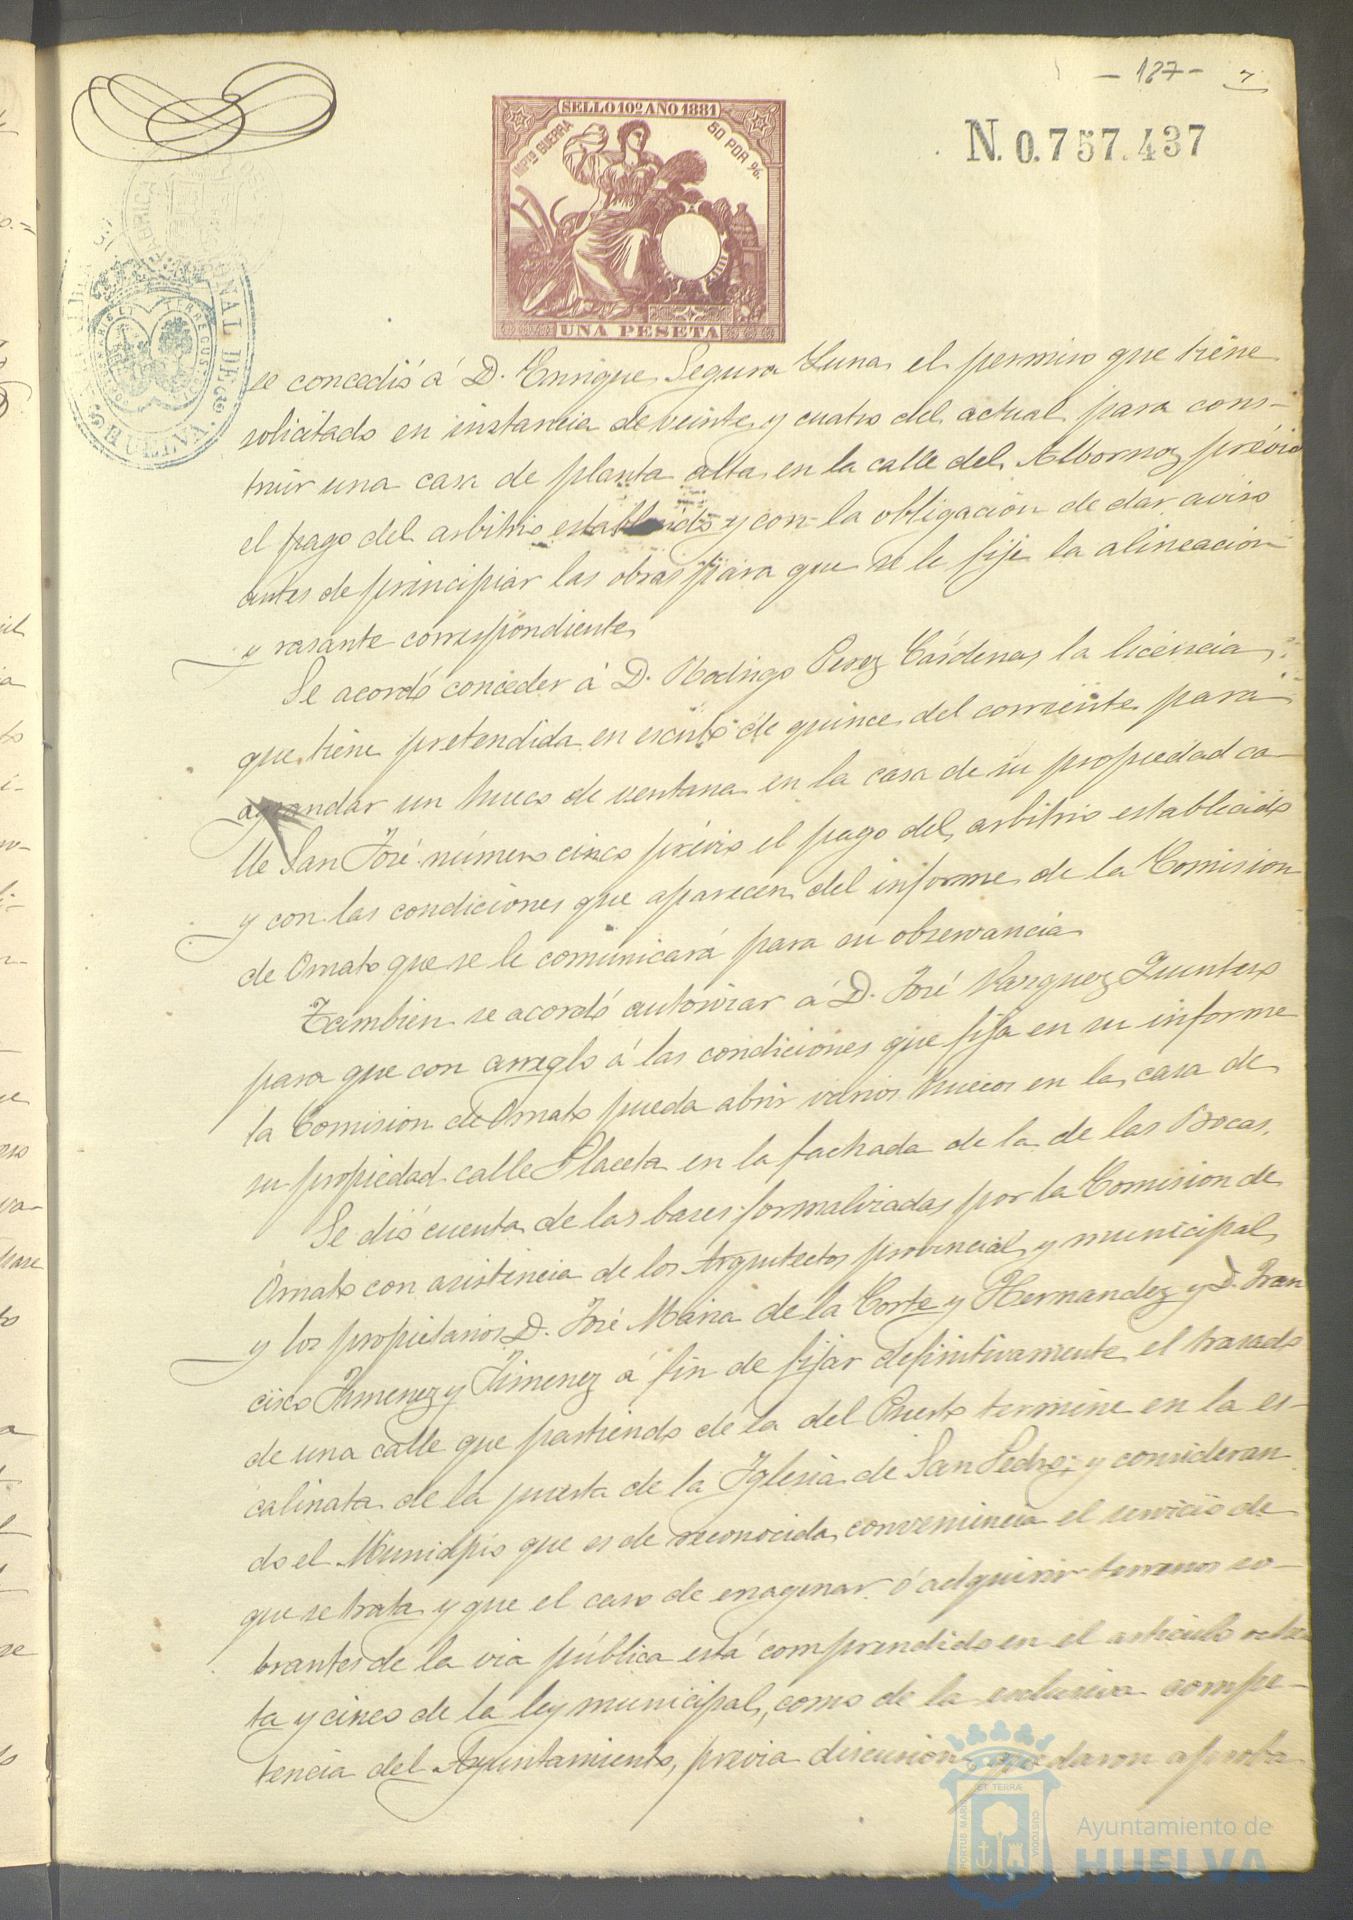 - 187 - 7
SELLO 10º AÑO 1881
IMPTO GUERRA
50 POR %.
UNA PESETA
N. 0.757.437
HUELVA
se concedió á D. Enrique Segura Luna el permiso que tiene
solicitado en instancia de veinte y cuatro del actual para cons-
truir una casa de planta alta en la calle del Albornoz prévio
el pago del arbitrio establecido y con la obligación de dar aviso
antes de principiar las obras para que se le fije la alineacion
y rasante correspondiente
Se acordó conceder á D. Rodrigo Perez Cárdenas la licencia
que tiene pretendida en escrito de quince del corriente para
agrandar un hueco de ventana en la casa de su propiedad ca-
lle San José número cinco prévio el pago del arbitrio establecido
y con las condiciones que aparecen del informe de la Comision
de Ornato que se le comunicará para su observancia
Tambien se acordó autorizar á D. José Vazquez Quintero
para que con arreglo á las condiciones que fija en su informe
la Comision de Ornato pueda abrir varios huecos en la casa de
su propiedad calle Placeta en la fachada de la de las Bocas.
Se dió cuenta de las bases formalizadas por la Comision de
Ornato con asistencia de los Arquitectos provincial y municipal
y los propietarios D. José Maria de la Corte y Hernandez y D. Fran
cisco Jimenez y Jimenez á fin de fijar definitivamente el trazado
de una calle que partiendo de la del Puerto termine en la es-
calinata de la puerta de la Iglesia de San Pedro; y consideran
do el Municipio que es de reconocida conveniencia el servicio de
que se trata y que el caso de enagenar ó adquirir terrenos so-
brantes de la via pública está comprendido en el articulo ochen
ta y cinco de la ley municipal, como de la exclusiva compe-
tencia del Ayuntamiento, previa discusion quedaron aproba
Ayuntamiento de
HUELVA